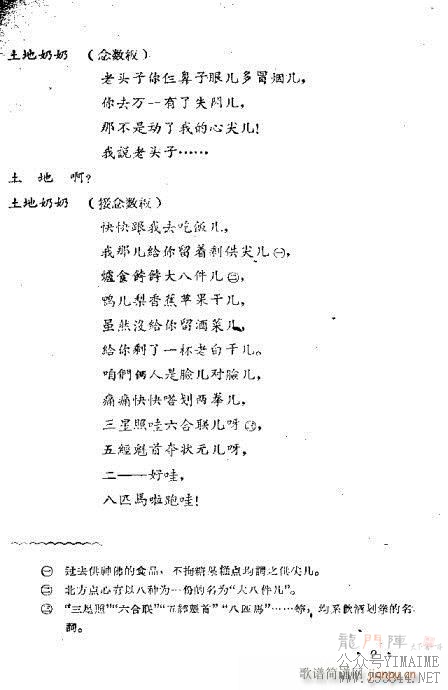 土地奶奶 (念数板)
老头子你仨鼻子眼儿多冒烟儿,
你去万一有了失闪儿,
那不是动了我的心尖儿!
我説老头子……
土 地 啊?
土地奶奶 (接念数板)
快快跟我去吃饭儿,
我那儿給你留着剩供尖儿㊀,
爐食餑餑大八件儿㊁,
鸭儿梨香蕉苹果干儿,
虽然沒給你留酒菜儿,
給你剩了一杯老白干儿。
咱們俩人是臉儿对臉儿,
痛痛快快喒划两拳儿,
三星照哇六合联儿呀㊂,
五經魁首夺状元儿呀,
二——好哇,
八匹馬啦跑哇!
㊀ 过去供神佛的食品,不拘糖果糕点均謂之供尖儿。
㊁ 北方点心有以八种为一份的名为“大八件儿”。
㊂ “三星照”“六合联”“五經魁首”“八匹馬”……等,均系飲酒划拳的名
詞。
龍門陣
公众号YIMAIME
歌谱简谱网
jianpu.cn